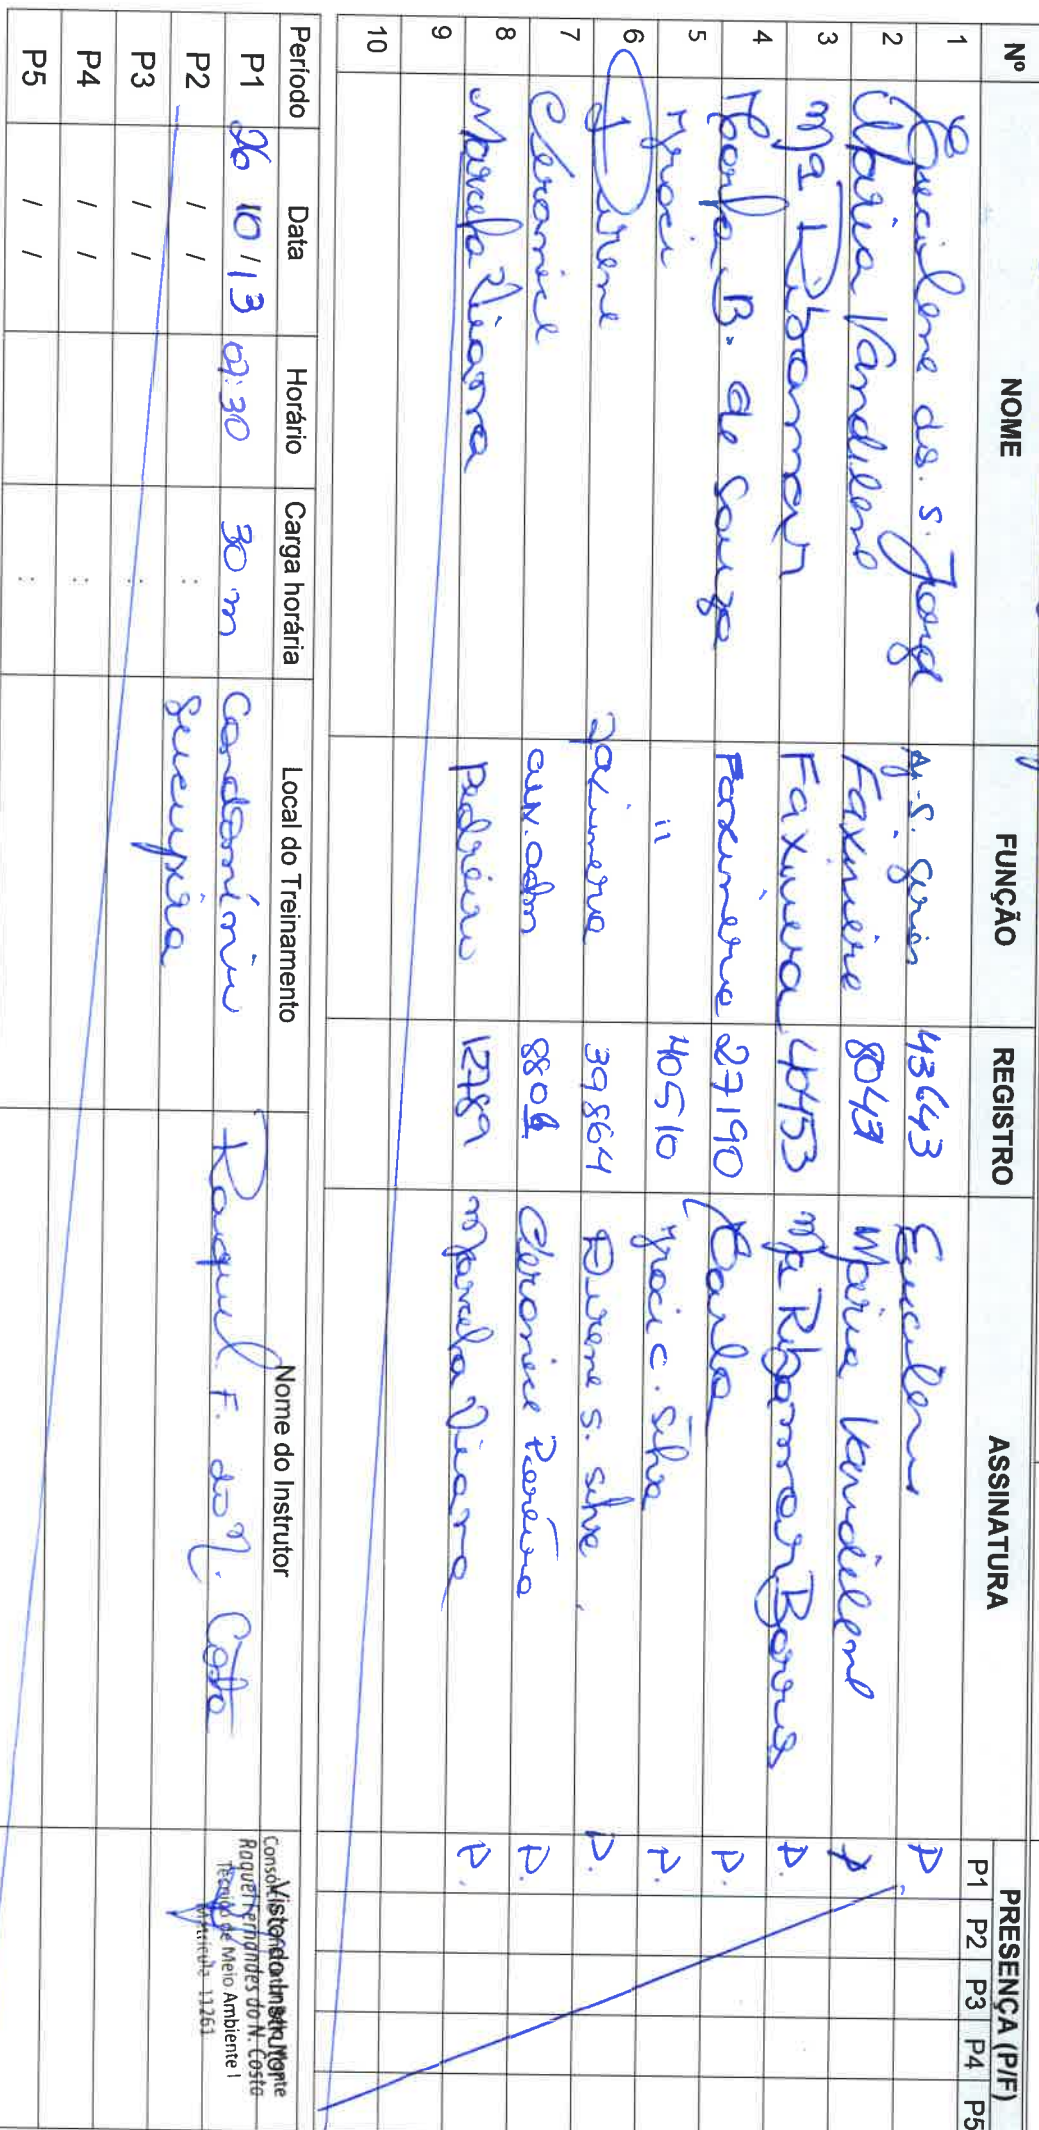 Nº NOME FUNÇÃO REGISTRO ASSINATURA PRESENÇA (P/F)
P1 P2 P3 P4 P5
1 Eucilene ds. S. Jorge Aj. S. Gerais 43643 Eucilene P
2 Maria Vandilene Faxineira 8043 Maria Vandilene P
3 Mª Ribamar Faxineira 40453 Mª Ribamar Barros P.
4 B. de Souza Faxineira 27190 Carla P.
5 Iraci " 40510 Iraci c. Silva P.
6 Direne Faxineira 39864 Direne S. silva P.
7 Cleronice aux. adm 8809 Cleronice Pereira P.
8 Marcela Viana Pedreiro 12789 Marcela Viana P.
9
10
Período Data Horário Carga horária Local do Treinamento Nome do Instrutor Visto do Instrutor
P1 26 10 / 13 07:30 30 m Condomínio Sucupira Raquel F. do N. Costa
P2 / / :
P3 / / :
P4 / / :
P5 / / :
Raquel Fernandes do N. Costa
Técnico de Meio Ambiente I
Matrícula 11261